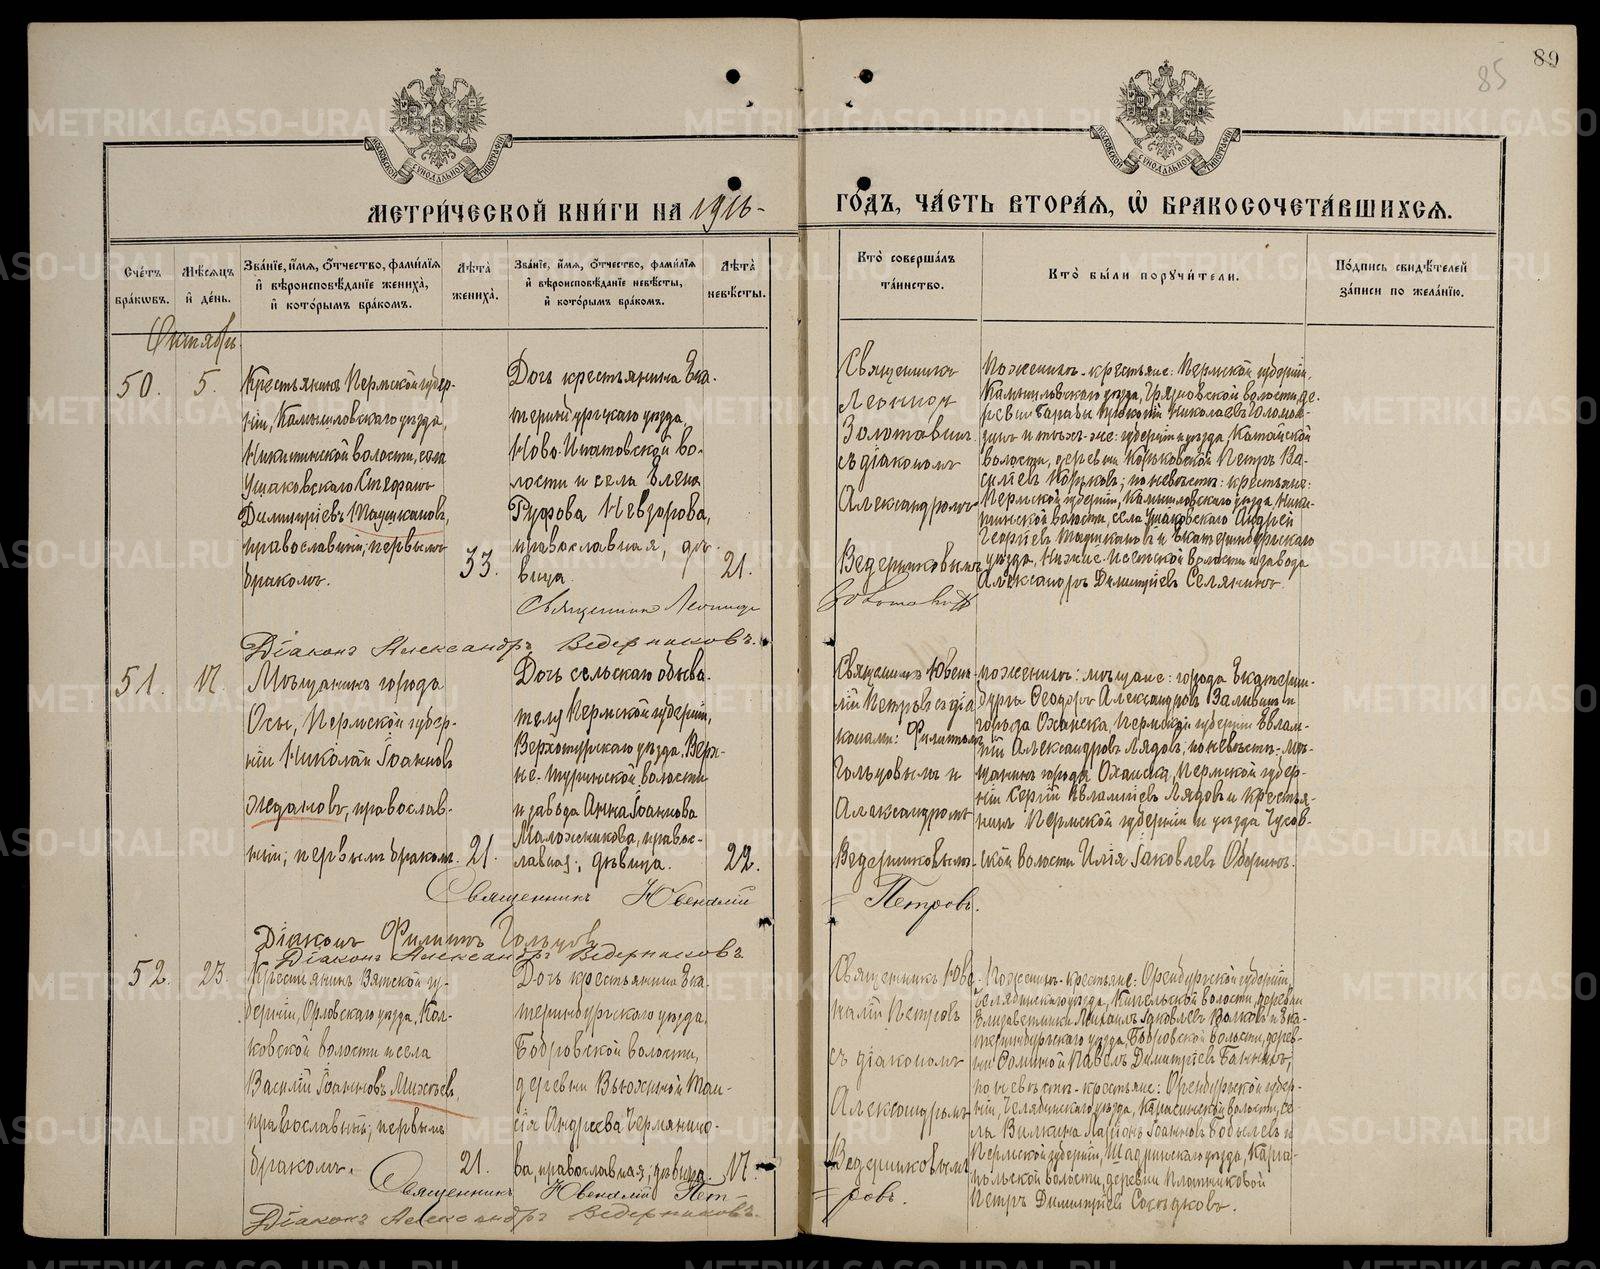 89
85
МЕТРИЧЕСКОЙ КНИГИ НА 1916-
ГОДЪ, ЧАСТЬ ВТОРАЯ, Ѡ БРАКОСОЧЕТАВШИХСЯ.
Счетъ браковъ.
Мѣсяцъ и день.
Званіе, имя, отчество, фамилія и вѣроисповѣданіе жениха, и которымъ бракомъ.
Лѣта жениха.
Званіе, имя, отчество, фамилія и вѣроисповѣданіе невѣсты, и которымъ бракомъ.
Лѣта невѣсты.
Кто совершалъ таинство.
Кто были поручители.
Подпись свидѣтелей записи по желанію.
Октябрь
50.
5.
Крестьянинъ Пермской губер-
ніи, Камышловскаго уѣзда,
Никитинской волости, села
Ушаковскаго Стефанъ
Димитріевъ Таушкановъ,
православный; первымъ
бракомъ.
33.
Дочь крестьянина Ека-
теринбургскаго уѣзда
Ново-Ипатовской во-
лости и села Елена
Руфова Невзорова,
православная, дѣ-
вица.
21.
Священникъ
Леонидъ
Золотавинъ
съ діакономъ
Александромъ
Ведерниковымъ
По женихѣ - крестьяне: Пермской губерніи
Камышловскаго уѣзда,
волости, де-
ревни
Николаевъ
и тѣхъ-же губерніи и уѣзда, Катайской
волости, деревни
Петръ Ва-
сильевъ
по невѣстѣ: крестьяне:
Пермской губерніи, Камышловскаго уѣзда, Ники-
тинской волости, села Ушаковскаго Андрей
Георгіевъ Таушкановъ и Екатеринбургскаго
уѣзда, Нижне-Исетской волости и завода
Александръ Димитріевъ Селянинъ.
Священникъ Леонидъ
Діаконъ Александръ Ведерниковъ.
51.
17.
Мѣщанинъ города
Осы, Пермской губер-
ніи Николай Іоанновъ
Ждановъ, православ-
ный; первымъ бракомъ.
21.
Дочь сельскаго обыва-
теля Пермской губерніи,
Верхотурскаго уѣзда, Верх-
не-Туринской волости
и завода Анна Іоаннова
православ-
славная; дѣвица.
22.
Священникъ Ювена-
лій Петровъ съ діа-
конами: Филиппомъ
Гольцовымъ и
Александромъ
Ведерниковымъ.
по женихѣ: мѣщане: города Екатерин-
бурга Ѳеодоръ Александровъ
и
города Оханска, Пермской губерніи Евлам-
пій Александровъ Лядовъ; по невѣстѣ - мѣ-
щанинъ города Оханска, Пермской губер-
ніи Сергій Евлампіевъ Лядовъ и крестья-
нинъ Пермской губерніи и уѣзда Чусов-
ской волости Илія Іаковлевъ Оборинъ.
Священникъ Ювеналій
Петровъ.
Діаконъ Филиппъ Гольцовъ
Діаконъ Александръ Ведерниковъ
52.
23.
Крестьянинъ Вятской гу-
берніи, Орловскаго уѣзда,
волости и села
Василій Іоанновъ Михѣевъ,
православный; первымъ
бракомъ.
21.
Дочь крестьянина Ека-
теринбургскаго уѣзда,
Бобровской волости,
деревни Вьюхиной Таи-
сія Андреева Чермянино-
ва, православная; дѣвица.
17.
Священникъ Юве-
налій Петровъ
съ діакономъ
Александромъ
Ведерниковымъ
По женихѣ - крестьяне: Оренбургской губерніи,
Челябинскаго уѣзда, Кипельской волости, деревни
Михаилъ Іаковлевъ Волковъ и Ека-
теринбургскаго уѣзда, Бобровской волости, дерев-
ни
Павелъ Димитріевъ
по невѣстѣ - крестьяне: Оренбургской губер-
ніи, Челябинскаго уѣзда, Карасинской волости, се-
ла Вилкина
Іоанновъ Бобылевъ и
Пермской губерніи, Шадринскаго уѣзда, Карга-
польской волости, деревни Плотниковой
Петръ Димитріевъ Сосѣдковъ.
Священникъ Ювеналій Пет-
ровъ.
Діаконъ Александръ Ведерниковъ.
METRIKI.GASO-URAL.RU